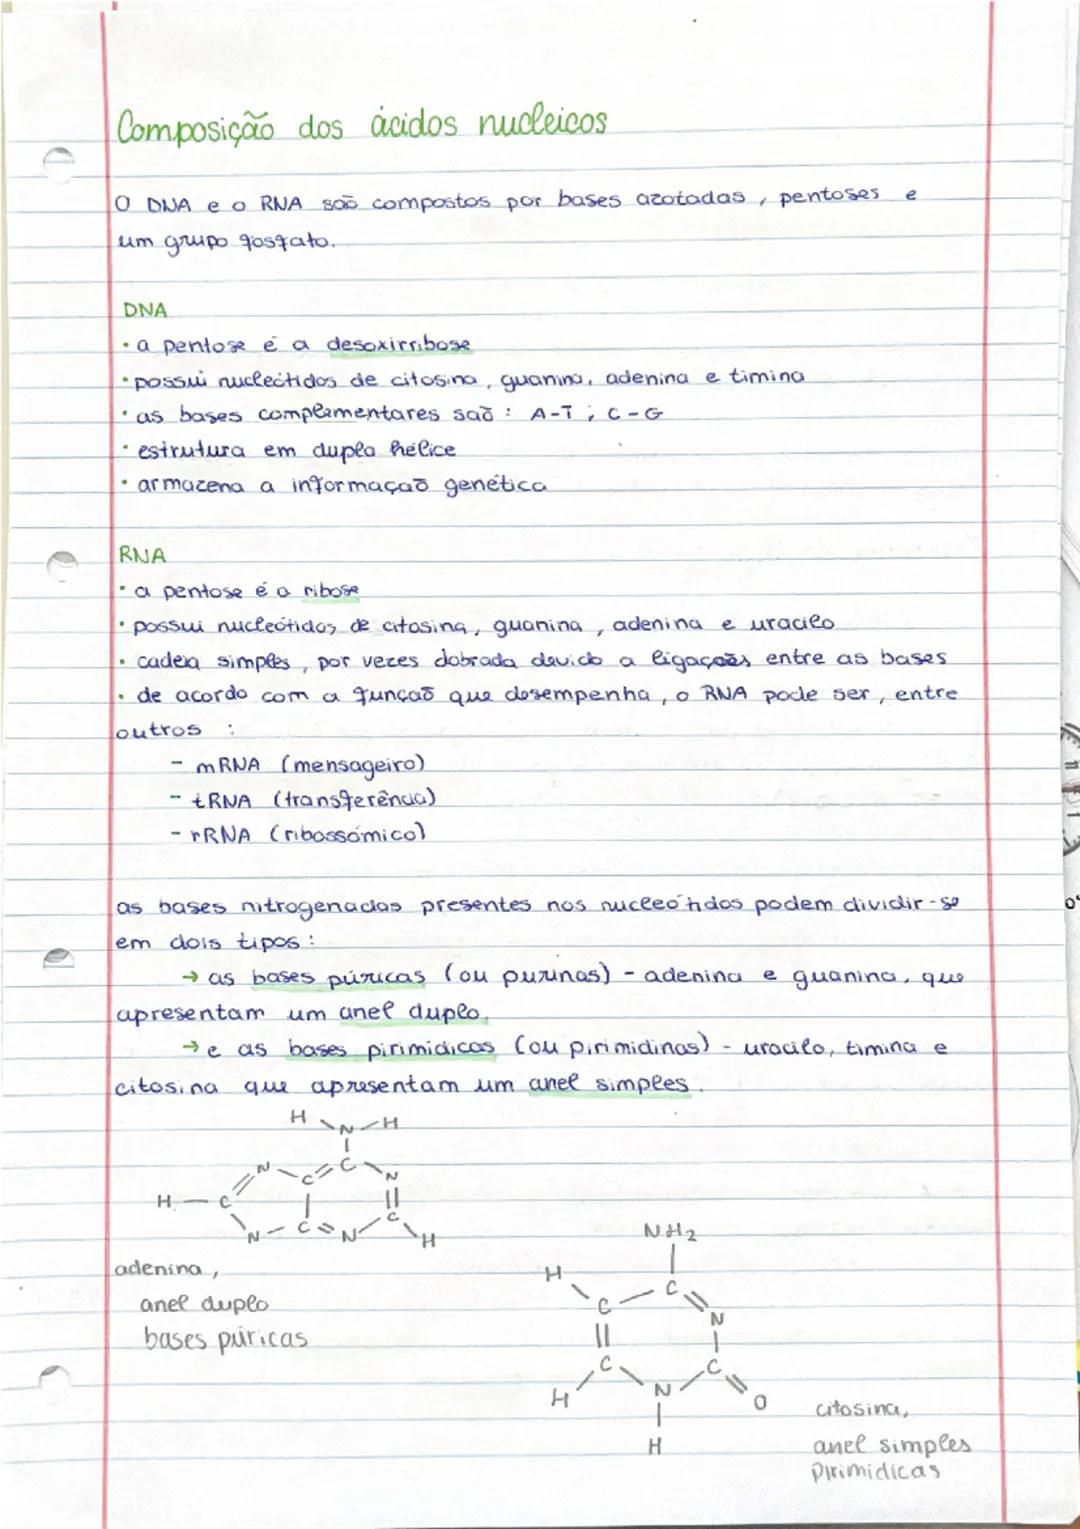 Composição dos ácidos nucleicos
O DNA e o RNA são compostos por bases azotadas, pentoses e
um grupo fosfato.
DNA
• a pentose é a desoxirribose
• possui nucleótidos de citosina, guanina, adenina e timina
• as bases complementares são: A-T; C-G
• estrutura em dupla hélice
• armazena a informação genética
RNA
• a pentose é a ribose
• possui nucleótidos de citosina, guanina, adenina e uracilo
• cadeia simples, por vezes dobrada devido a ligações entre as bases
• de acordo com a função que desempenha, o RNA pode ser, entre
outros :
- mRNA (mensageiro)
- tRNA (transferência)
- rRNA (ribossómico)
as bases nitrogenadas presentes nos nucleótidos podem dividir-se
em dois tipos:
→ as bases púricas (ou purinas) - adenina e guanina, que
apresentam um anel duplo,
→ e as bases pirimidicas (ou pirimidinas) - uracilo, timina e
citosina que apresentam um anel simples.
H N H
N C C N
H C
N C N C H
adenina,
anel duplo
bases púricas
NH2
H C C N
H C N C O
H
citosina,
anel simples
Pirimidicas